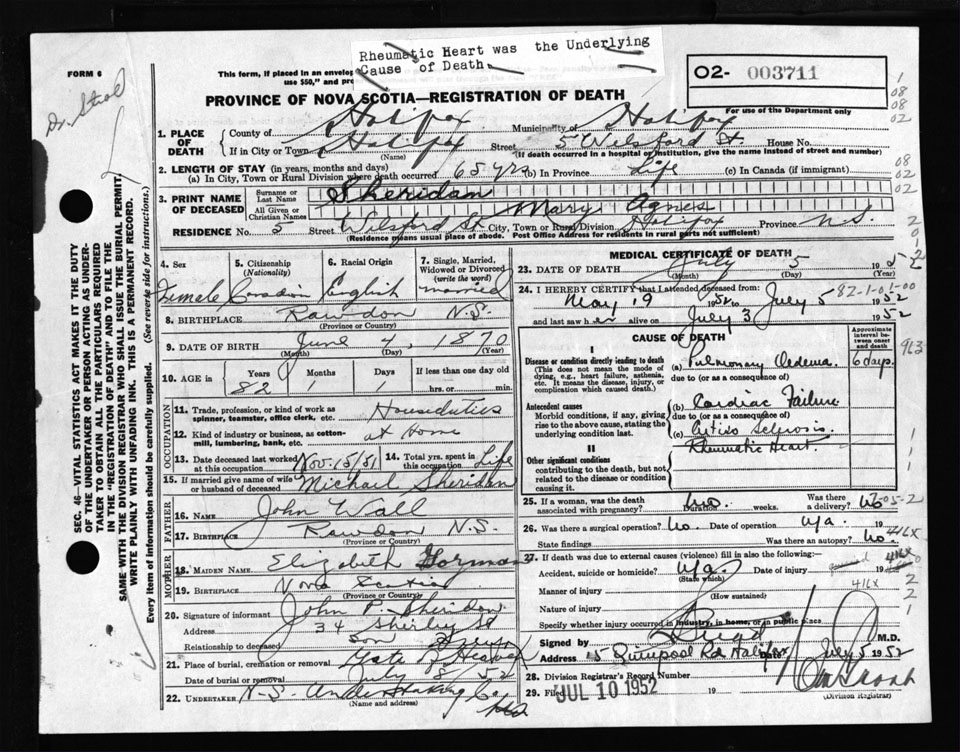 Rheumatic Heart was the Underlying
Cause of Death
FORM 6
Dr. Steol
This form, if placed in an envelop
use $50," and pr
O2- 003711
For use of the Department only
PROVINCE OF NOVA SCOTIA—REGISTRATION OF DEATH
1. PLACE OF DEATH
County of Halifax Municipality of Halifax
If in City or Town Halifax Street 5 Wilsford St House No.
(Name) (If death occurred in a hospital or institution, give the name instead of street and number)
2. LENGTH OF STAY (in years, months and days)
(a) In City, Town or Rural Division where death occurred 65 yrs (b) In Province Life (c) In Canada (if immigrant)
3. PRINT NAME OF DECEASED
Surname or Last Name Sheridan
All Given or Christian Names Mary Agnes
RESIDENCE No. 5 Street Wilsford St City, Town or Rural Division Halifax Province N.S.
(Residence means usual place of abode. Post Office Address for residents in rural parts not sufficient)
4. Sex Female
5. Citizenship (Nationality) Canadian
6. Racial Origin English
7. Single, Married, Widowed or Divorced (write the word) married
8. BIRTHPLACE Rawdon N.S.
(Province or Country)
9. DATE OF BIRTH June 4, 1870
(Month) (Day) (Year)
10. AGE in Years Months Days If less than one day old
82 1 1 hrs. or min.
OCCUPATION
11. Trade, profession, or kind of work as spinner, teamster, office clerk, etc. Houseduties
12. Kind of industry or business, as cotton-mill, lumbering, bank, etc. at Home
13. Date deceased last worked at this occupation Nov. 15/51
14. Total yrs. spent in this occupation Life
15. If married give name of wife or husband of deceased Michael Sheridan
FATHER
16. Name John Wall
17. Birthplace Rawdon N.S.
(Province or Country)
MOTHER
18. MAIDEN NAME Elizabeth Gorman
19. BIRTHPLACE Nova Scotia
(Province or Country)
20. Signature of informant John P. Sheridan
Address 34 Shirley St
Relationship to deceased Son
21. Place of burial, cremation or removal Gate of Heaven
Date of burial or removal July 8/52
22. UNDERTAKER N.S. Undertaking Co
(Name and address)
MEDICAL CERTIFICATE OF DEATH
23. DATE OF DEATH July 5 1952
(Month) (Day)
24. I HEREBY CERTIFY that I attended deceased from:
May 19 1952 to July 5 1952
82-1-01-00
and last saw her alive on July 3 1952
CAUSE OF DEATH
Approximate interval between onset and death
Disease or condition directly leading to death
(This does not mean the mode of dying, e.g., heart failure, asthenia, etc. It means the disease, injury, or complication which caused death.)
(a) Pulmonary Oedema 6 days.
due to (or as a consequence of)
Antecedent causes
Morbid conditions, if any, giving rise to the above cause, stating the underlying condition last.
(b) Cardiac Failure
due to (or as a consequence of)
(c)
II
Rheumatic Heart.
Other significant conditions
contributing to the death, but not related to the disease or condition causing it.
25. If a woman, was the death associated with pregnancy? no. Duration weeks. Was there a delivery? no
26. Was there a surgical operation? no. Date of operation n/a. 19
State findings Was there an autopsy? no.
27. If death was due to external causes (violence) fill in also the following:
Accident, suicide or homicide? n/a. Date of injury 19
(State which)
Manner of injury 416X
(How sustained)
Nature of injury
Specify whether injury occurred in industry, in home, or in public place
Signed by M.D.
Address Quinpool Rd Halifax Date July 5 1952
28. Division Registrar's Record Number
29. Filed JUL 10 1952 19
(Division Registrar)
SEC. 46—VITAL STATISTICS ACT MAKES IT THE DUTY
OF THE UNDERTAKER OR PERSON ACTING AS UNDER-
TAKER TO OBTAIN ALL THE PARTICULARS REQUIRED
IN THE "REGISTRATION OF DEATH" AND TO FILE THE
SAME WITH THE DIVISION REGISTRAR WHO SHALL ISSUE THE BURIAL PERMIT.
WRITE PLAINLY WITH UNFADING INK. THIS IS A PERMANENT RECORD.
Every item of information should be carefully supplied. (See reverse side for instructions.)